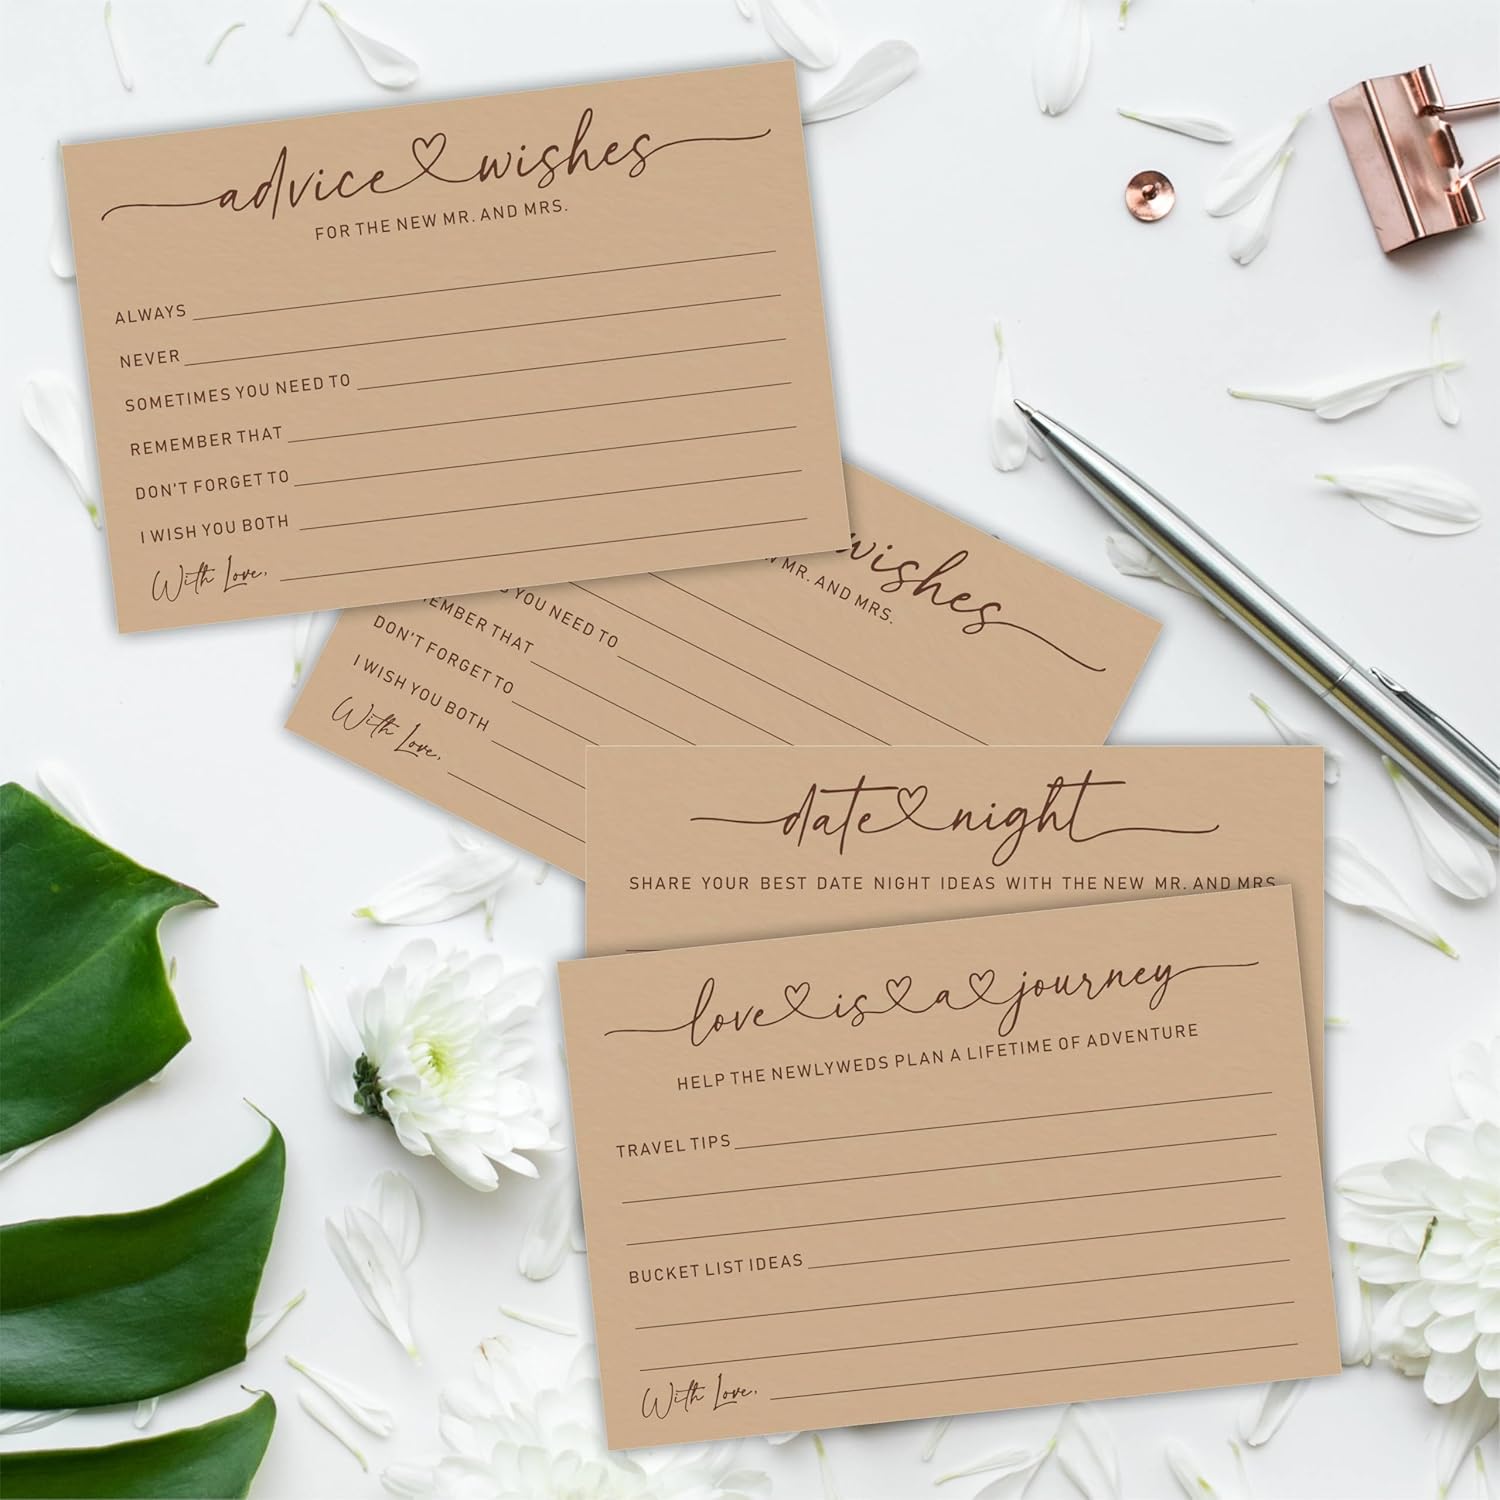 advice wishes
FOR THE NEW MR. AND MRS.
ALWAYS
NEVER
SOMETIMES YOU NEED TO
REMEMBER THAT
DON'T FORGET TO
I WISH YOU BOTH
With Love,
wishes
MR. AND MRS.
YOU NEED TO
EMBER THAT
DON'T FORGET TO
I WISH YOU BOTH
With Love,
date night
SHARE YOUR BEST DATE NIGHT IDEAS WITH THE NEW MR. AND MRS
love is a journey
HELP THE NEWLYWEDS PLAN A LIFETIME OF ADVENTURE
TRAVEL TIPS
BUCKET LIST IDEAS
With Love,